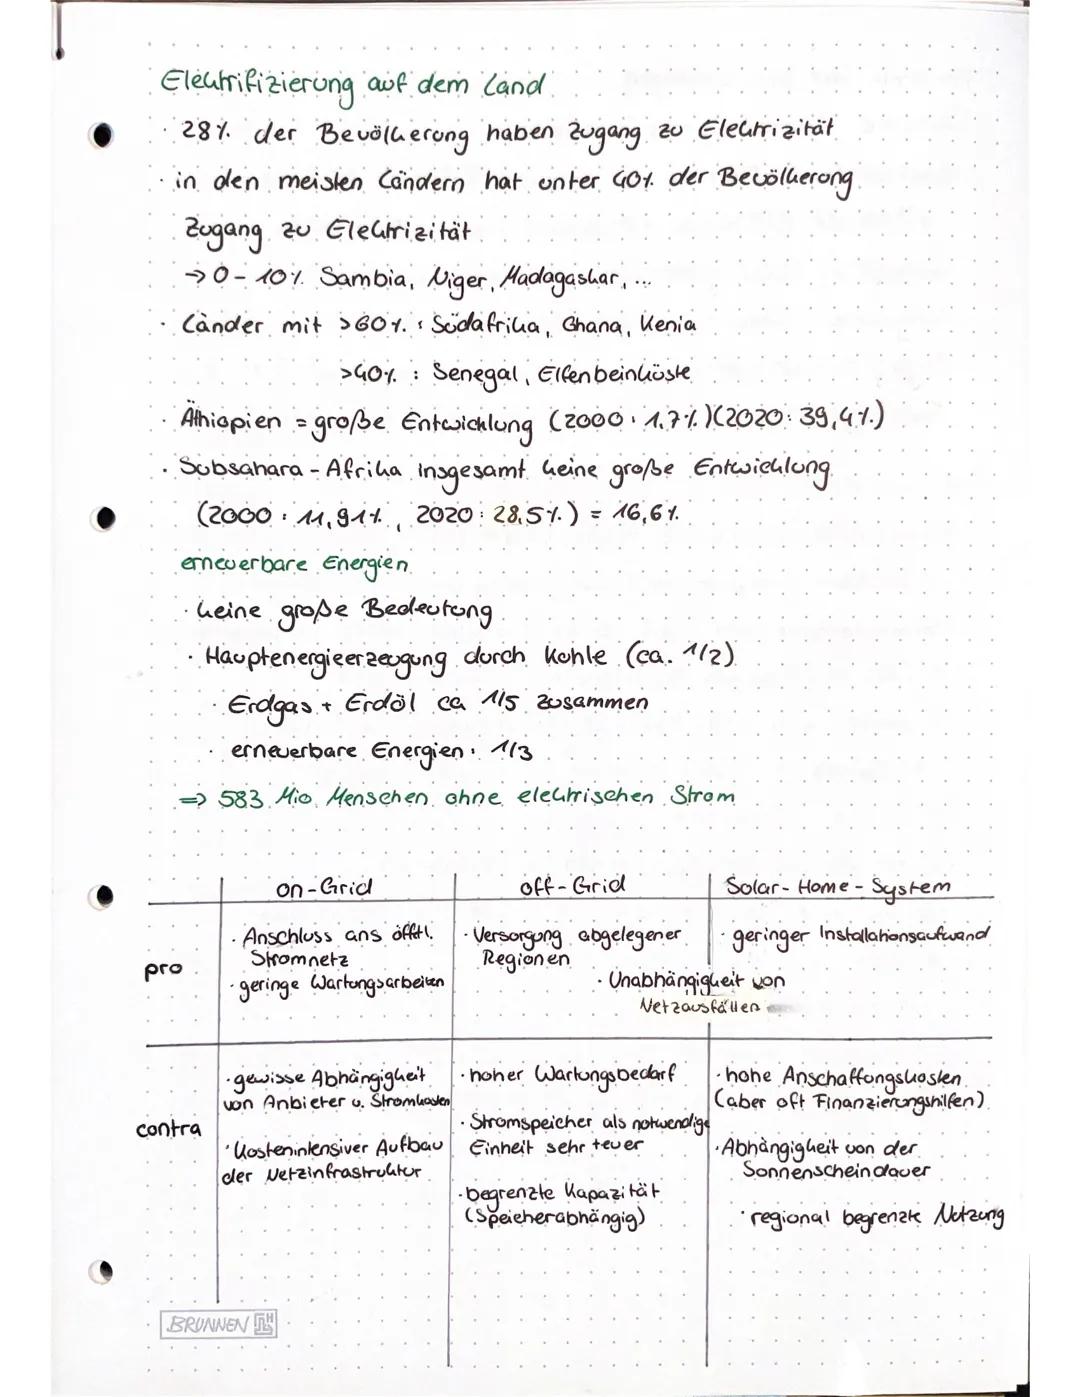 Elektrifizierung auf dem Land
· 28% der Bevölkerung haben Zugang zu Elektrizität
· in den meisten Ländern hat unter 40% der Bevölkerung
Zugang zu Elektrizität
→ 0-10% Sambia, Niger, Madagaskar, ...
· Länder mit >60% : Südafrika, Ghana, Kenia
>40% : Senegal, Elfenbeinküste
· Äthiopien = große Entwicklung (2000: 1,7%)(2020: 39,4%)
· Subsahara-Afrika insgesamt keine große Entwicklung
(2000: 11,91%, 2020: 28,5%) = 16,6%
erneuerbare Energien
· keine große Bedeutung
· Hauptenergieerzeugung durch Kohle (ca. 1/2)
· Erdgas + Erdöl ca 1/5 zusammen
· erneuerbare Energien: 1/3
=> 583 Mio. Menschen ohne elektrischen Strom
on-Grid off-Grid Solar-Home-System
pro
· Anschluss ans öfftl.
Stromnetz
· geringe Wartungsarbeiten
· Versorgung abgelegener
Regionen
· Unabhängigkeit von
Netzausfällen
· geringer Installationsaufwand
contra
· gewisse Abhängigkeit
von Anbieter u. Stromkosten
· Kostenintensiver Aufbau
der Netzinfrastruktur
· hoher Wartungsbedarf
· Stromspeicher als notwendige
Einheit sehr teuer
· begrenzte Kapazität
(Speicherabhängig)
· hohe Anschaffungskosten
(aber oft Finanzierungshilfen)
· Abhängigkeit von der
Sonnenscheindauer
· regional begrenzte Nutzung
BRUNNEN